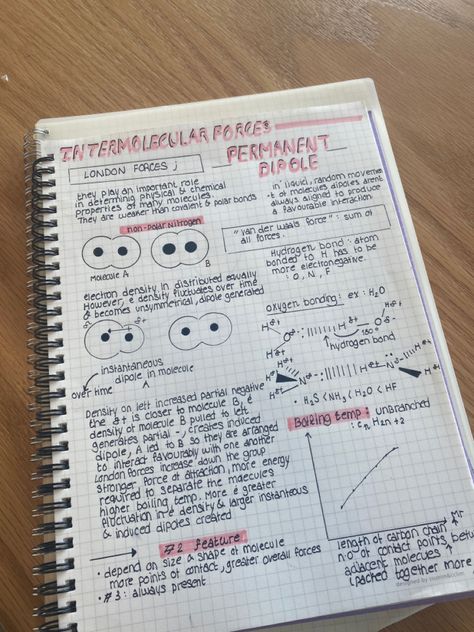 INTERMOLECULAR FORCES
LONDON FORCES ;
they play an important role
in determining physical & chemical
properties of many molecules.
They are weaker than covalent & polar bonds
non-polar nitrogen
MOLECULE A
B
electron density in distributed equally
However, e density fluctuates over time
& becomes unsymmetrical, dipole generated
δ-
δ+
instantaneous
dipole in molecule
over time
A
Density on left increased partial negative
the δ+ is closer to molecule B, e
density of molecule B pulled to left
generates partial -, creates induced
dipole, A led to B so they are arranged
to interact favourably with one another
London forces increase down the group
stronger force of attraction, more energy
required to separate the molecules
higher boiling temp. More e greater
fluctuation in e density & larger instantaneous
& induced dipoles created
#2 feature
• depend on size & shape of molecule
more points of contact, greater overall forces
• #3 : always present
PERMANENT
DIPOLE
in liquid, random movement
of molecules dipoles arent
always aligned to produce
a favourable interaction
"van der waals force" : sum of
all forces.
Hydrogen bond : atom
bonded to H has to be
more electronegative
: O, N, F
oxygen bonding : ex : H2O
H δ+
H δ+
O δ-
H δ+
O δ-
H δ+
180°
hydrogen bond
H δ+
H δ+
H δ+
N δ-
H δ+
N δ-
H δ+
H δ+
• H2S < NH3 < H2O < HF
Boiling temp : unbranched
: Cn H2n+2
Mr
length of carbon chain ↑
n.o of contact points
adjacent molecules ↑
(packed together more